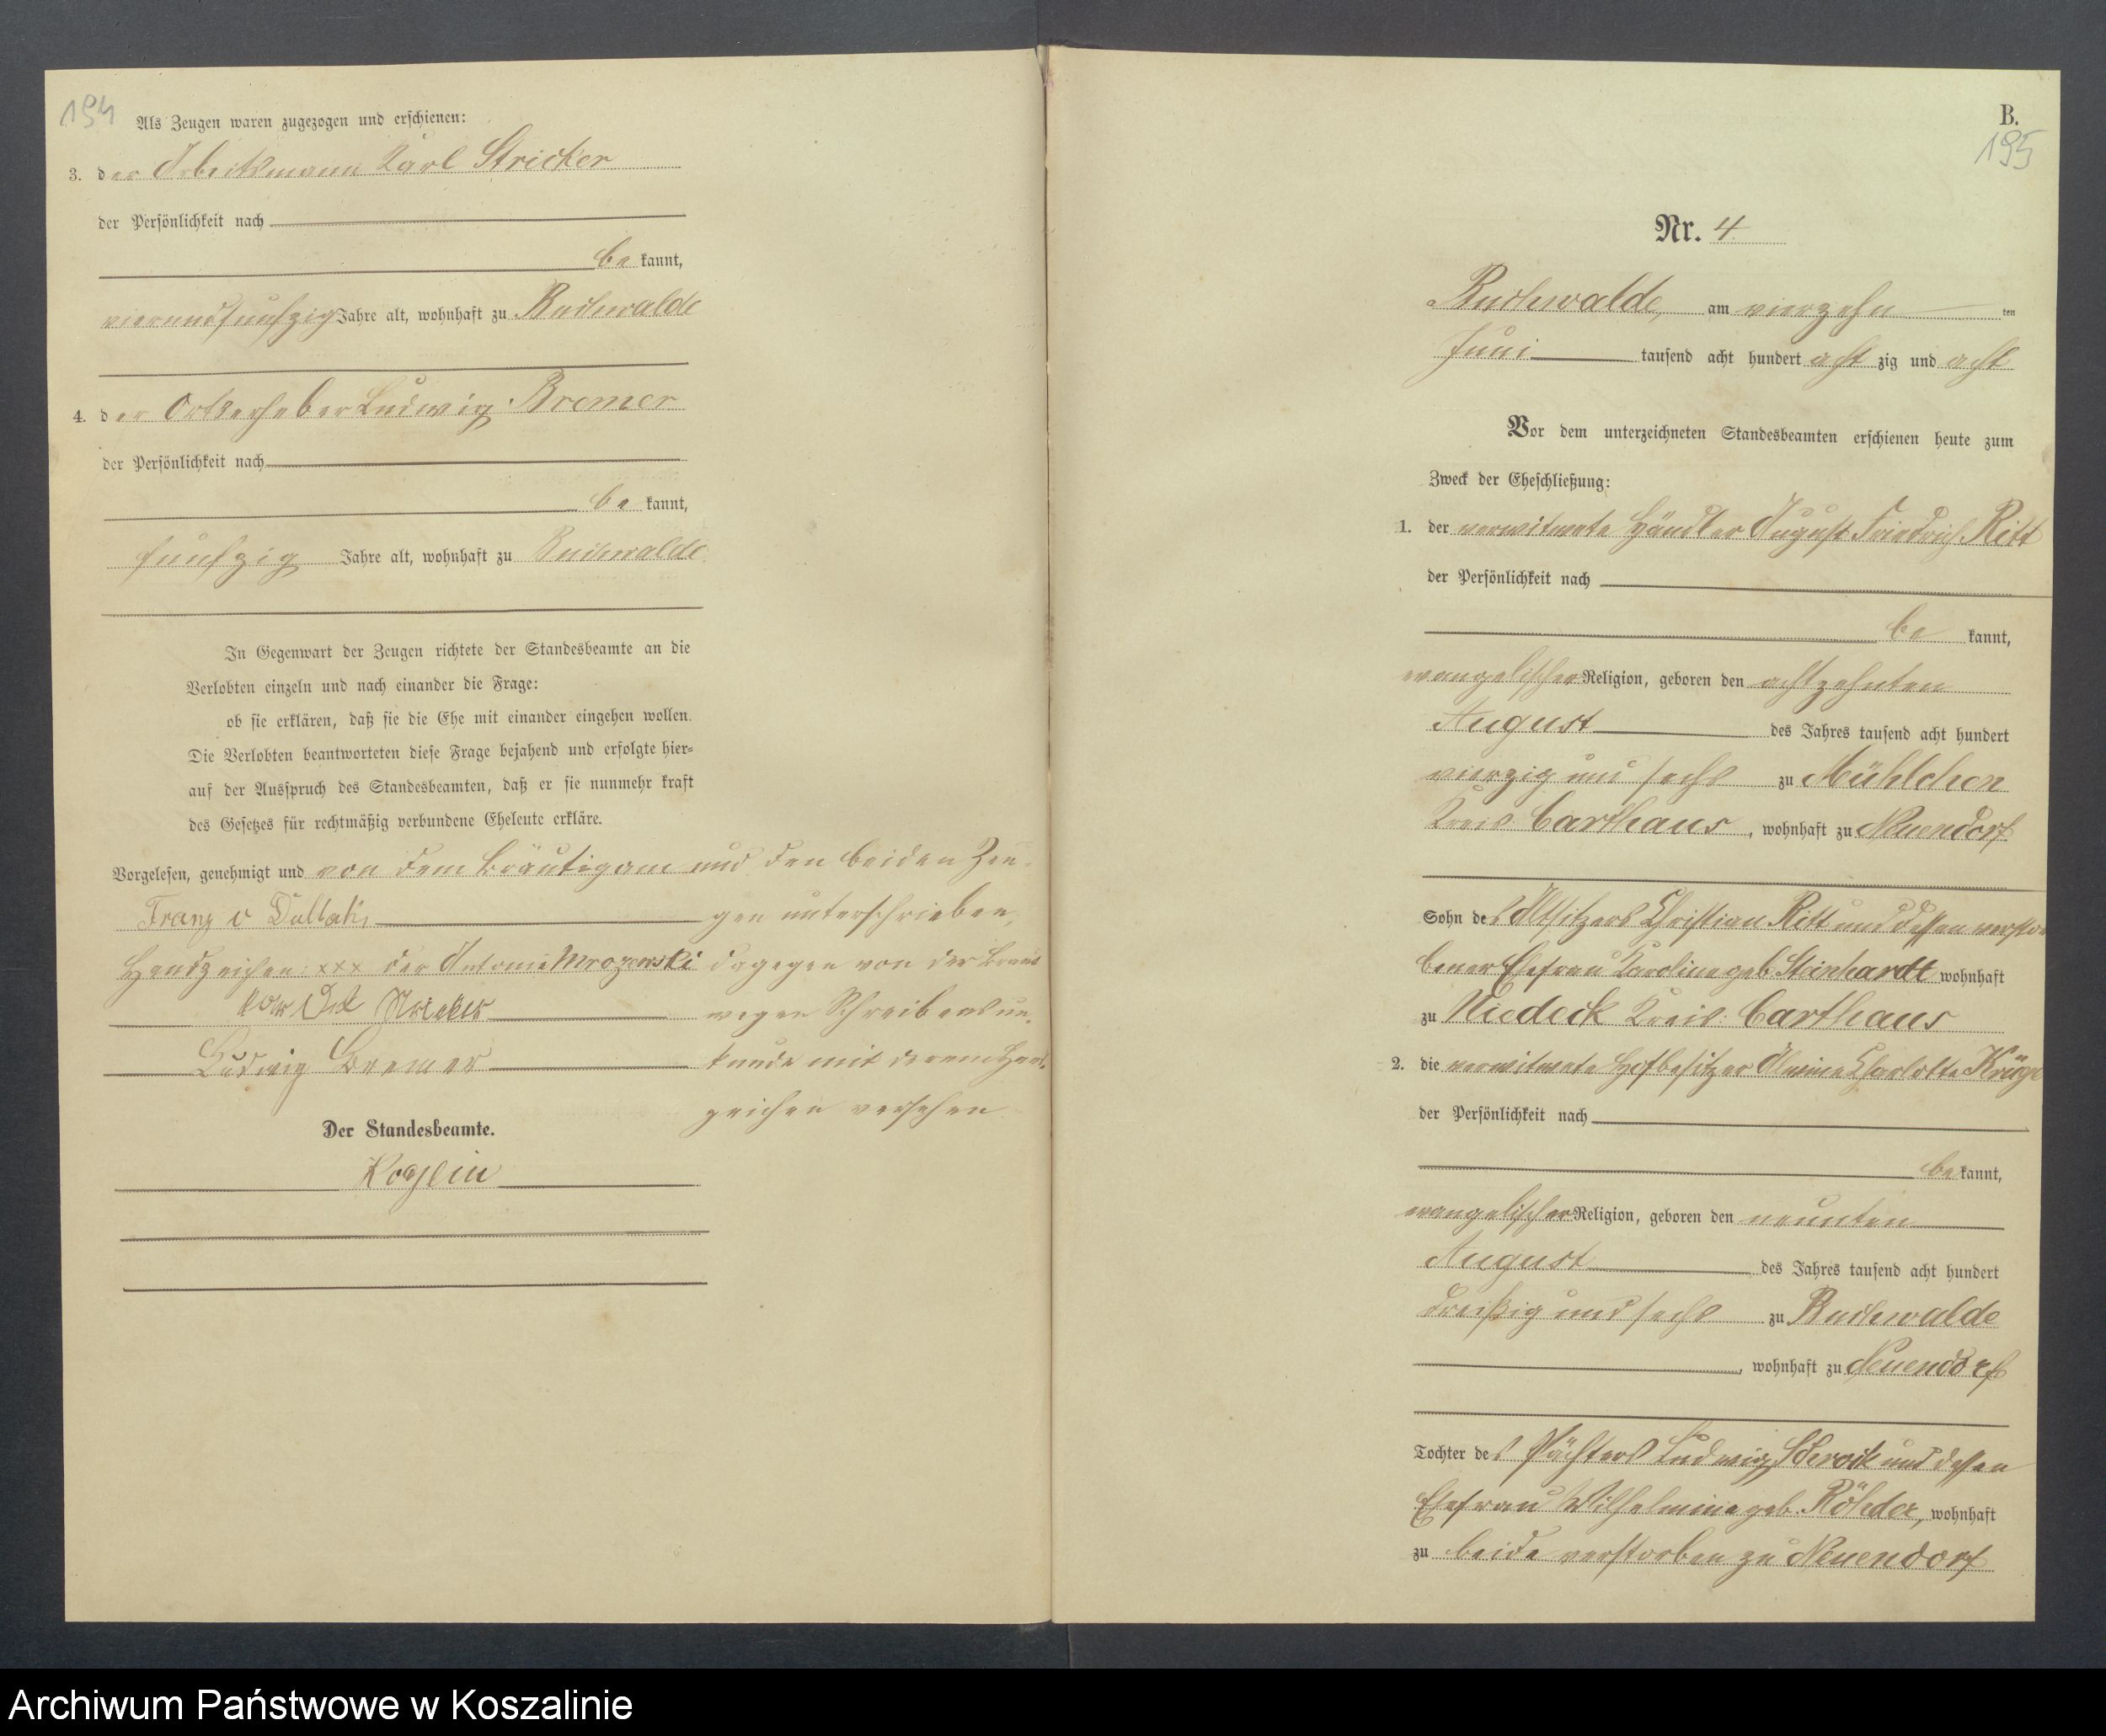 194
Als Zeugen waren zugezogen und erschienen:
3. der Arbeitsmann Karl Stricker
der Persönlichkeit nach
be kannt,
vierundfunfzig Jahre alt, wohnhaft zu Buchwalde
4. der Ortserheber Ludwig Bremer
der Persönlichkeit nach
be kannt,
funfzig Jahre alt, wohnhaft zu Buchwalde
In Gegenwart der Zeugen richtete der Standesbeamte an die
Verlobten einzeln und nach einander die Frage:
ob sie erklären, daß sie die Ehe mit einander eingehen wollen.
Die Verlobten beantworteten diese Frage bejahend und erfolgte hier-
auf der Ausspruch des Standesbeamten, daß er sie nunmehr kraft
des Gesetzes für rechtmäßig verbundene Eheleute erkläre.
Vorgelesen, genehmigt und von dem Bräutigam und den beiden Zeu-
Franz v gen unterschrieben,
Handzeichen: xxx der Antonie Mrozewski dagegen von der Braut
Stricker wegen Schreibensun-
Ludwig Bremer kunde mit deren Hand-
zeichen versehen
Der Standesbeamte.
B.
195
Nr. 4
Buchwalde, am vierzehn ten
Juni tausend acht hundert acht zig und acht
Vor dem unterzeichneten Standesbeamten erschienen heute zum
Zweck der Eheschließung:
1. der verwitwete Händler August Friedrich Ritt
der Persönlichkeit nach
be kannt,
evangelischer Religion, geboren den achtzehnten
August des Jahres tausend acht hundert
vierzig und sechs zu Mühlchen
Kreis Carthaus, wohnhaft zu Neuendorf
Sohn des Altsitzers Christian Ritt und dessen verstor
bener Ehefrau Karoline geb. Steinhardt wohnhaft
zu Niedeck Kreis: Carthaus
2. die verwitwete Hofbesitzer Charlotte Krüger
der Persönlichkeit nach
be kannt,
evangelischer Religion, geboren den neunten
August des Jahres tausend acht hundert
dreißig und sechs zu Buchwalde
, wohnhaft zu Neuendorf
Tochter des Pächters Ludwig und dessen
Ehefrau Wilhelmine geb. Röhder, wohnhaft
zu beide verstorben zu Neuendorf
Archiwum Państwowe w Koszalinie